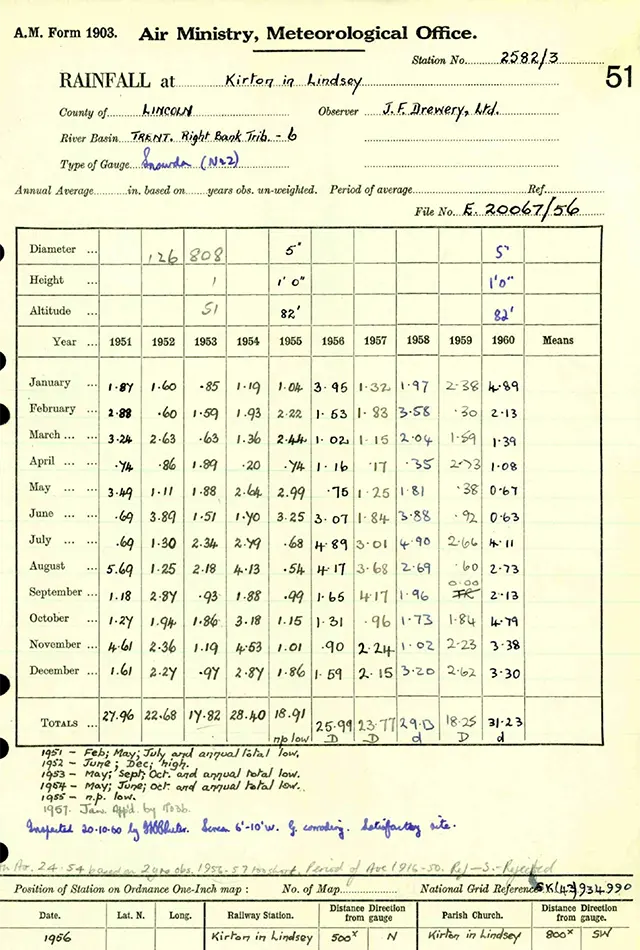 A.M. Form 1903. Air Ministry, Meteorological Office.
Station No. 2582/3
51
RAINFALL at Kirton in Lindsey
County of LINCOLN Observer J.F. Drewery, Ltd.
River Basin TRENT. Right Bank Trib. - 6
Type of Gauge Snowdon (No 2)
Annual Average in. based on years obs. un-weighted. Period of average Ref.
File No. E. 20067/56
Diameter ... 126 808 5" 5"
Height ... 1 1' 0" 1'0"
Altitude ... 51 82' 82'
Year ... 1951 1952 1953 1954 1955 1956 1957 1958 1959 1960 Means
January ... 1.87 1.60 .85 1.19 1.04 3.95 1.32 1.97 2.38 4.89
February ... 2.88 .60 1.59 1.93 2.22 1.53 1.83 3.58 .30 2.13
March ... ... 3.24 2.63 .63 1.36 2.44 1.02 1.15 2.04 1.59 1.39
April ... ... .74 .86 1.89 .20 .74 1.16 .17 .35 2.73 1.08
May ... ... 3.49 1.11 1.88 2.64 2.99 .75 1.25 1.81 .38 0.67
June ... ... .69 3.89 1.51 1.70 3.25 3.07 1.84 3.88 .92 0.63
July ... ... .69 1.30 2.34 2.79 .68 4.89 3.01 4.90 2.66 4.11
August ... 5.69 1.25 2.18 4.13 .54 4.17 3.68 2.69 .60 2.73
0.00
September ... 1.18 2.87 .93 1.88 .99 1.65 4.17 1.96 TR 2.13
October ... 1.27 1.94 1.86 3.18 1.15 1.31 .96 1.73 1.84 4.79
November ... 4.61 2.36 1.19 4.53 1.01 .90 2.24 1.02 2.23 3.38
December ... 1.61 2.27 .97 2.87 1.86 1.59 2.15 3.20 2.62 3.30
TOTALS ... 27.96 22.68 17.82 28.40 18.91 25.99 23.77 29.13 18.25 31.23
np low D D d D d
1951 - Feb; May; July and annual total low.
1952 - June; Dec; high.
1953 - May; Sept; Oct. and annual total low.
1954 - May; June; oct and annual total low.
1955 - n.p. low.
1957. Jan. App'd. by
Inspected 20.10.60 by Screen 6'-10'W. G. corroding. Satisfactory site.
Av. 24.54 based on 2 yrs obs. 1956-57 too short. Period of Ave 1916-50. Ref -S.- Rejected
Position of Station on Ordnance One-Inch map : No. of Map National Grid Reference SK(43)934990
Date. Lat. N. Long. Railway Station. Distance Direction from gauge Parish Church. Distance Direction from gauge
1956 Kirton in Lindsey 500x N Kirton in Lindsey 800x SW